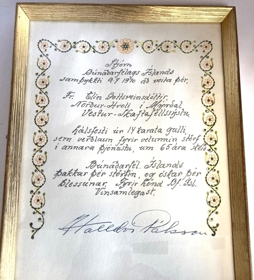 Stjórn
Búnaðarfélags Íslands
samþykkti 9/9 1970 að veita þér,
Fr. Elín Þorsteinsdóttir
Norður-Hvoli í Mýrdal
Vestur-Skaftafellssýslu
hálsfesti úr 14 karata gulli,
sem verðlaun fyrir
störf
í annara þjónustu, um 65 ára skeið
Búnaðarfél. Íslands
þakkar þér störfin, og óskar þér
blessunar, fyrir hönd Bf. Ísl.
Vinsamlegast,
Halldór Pálsson